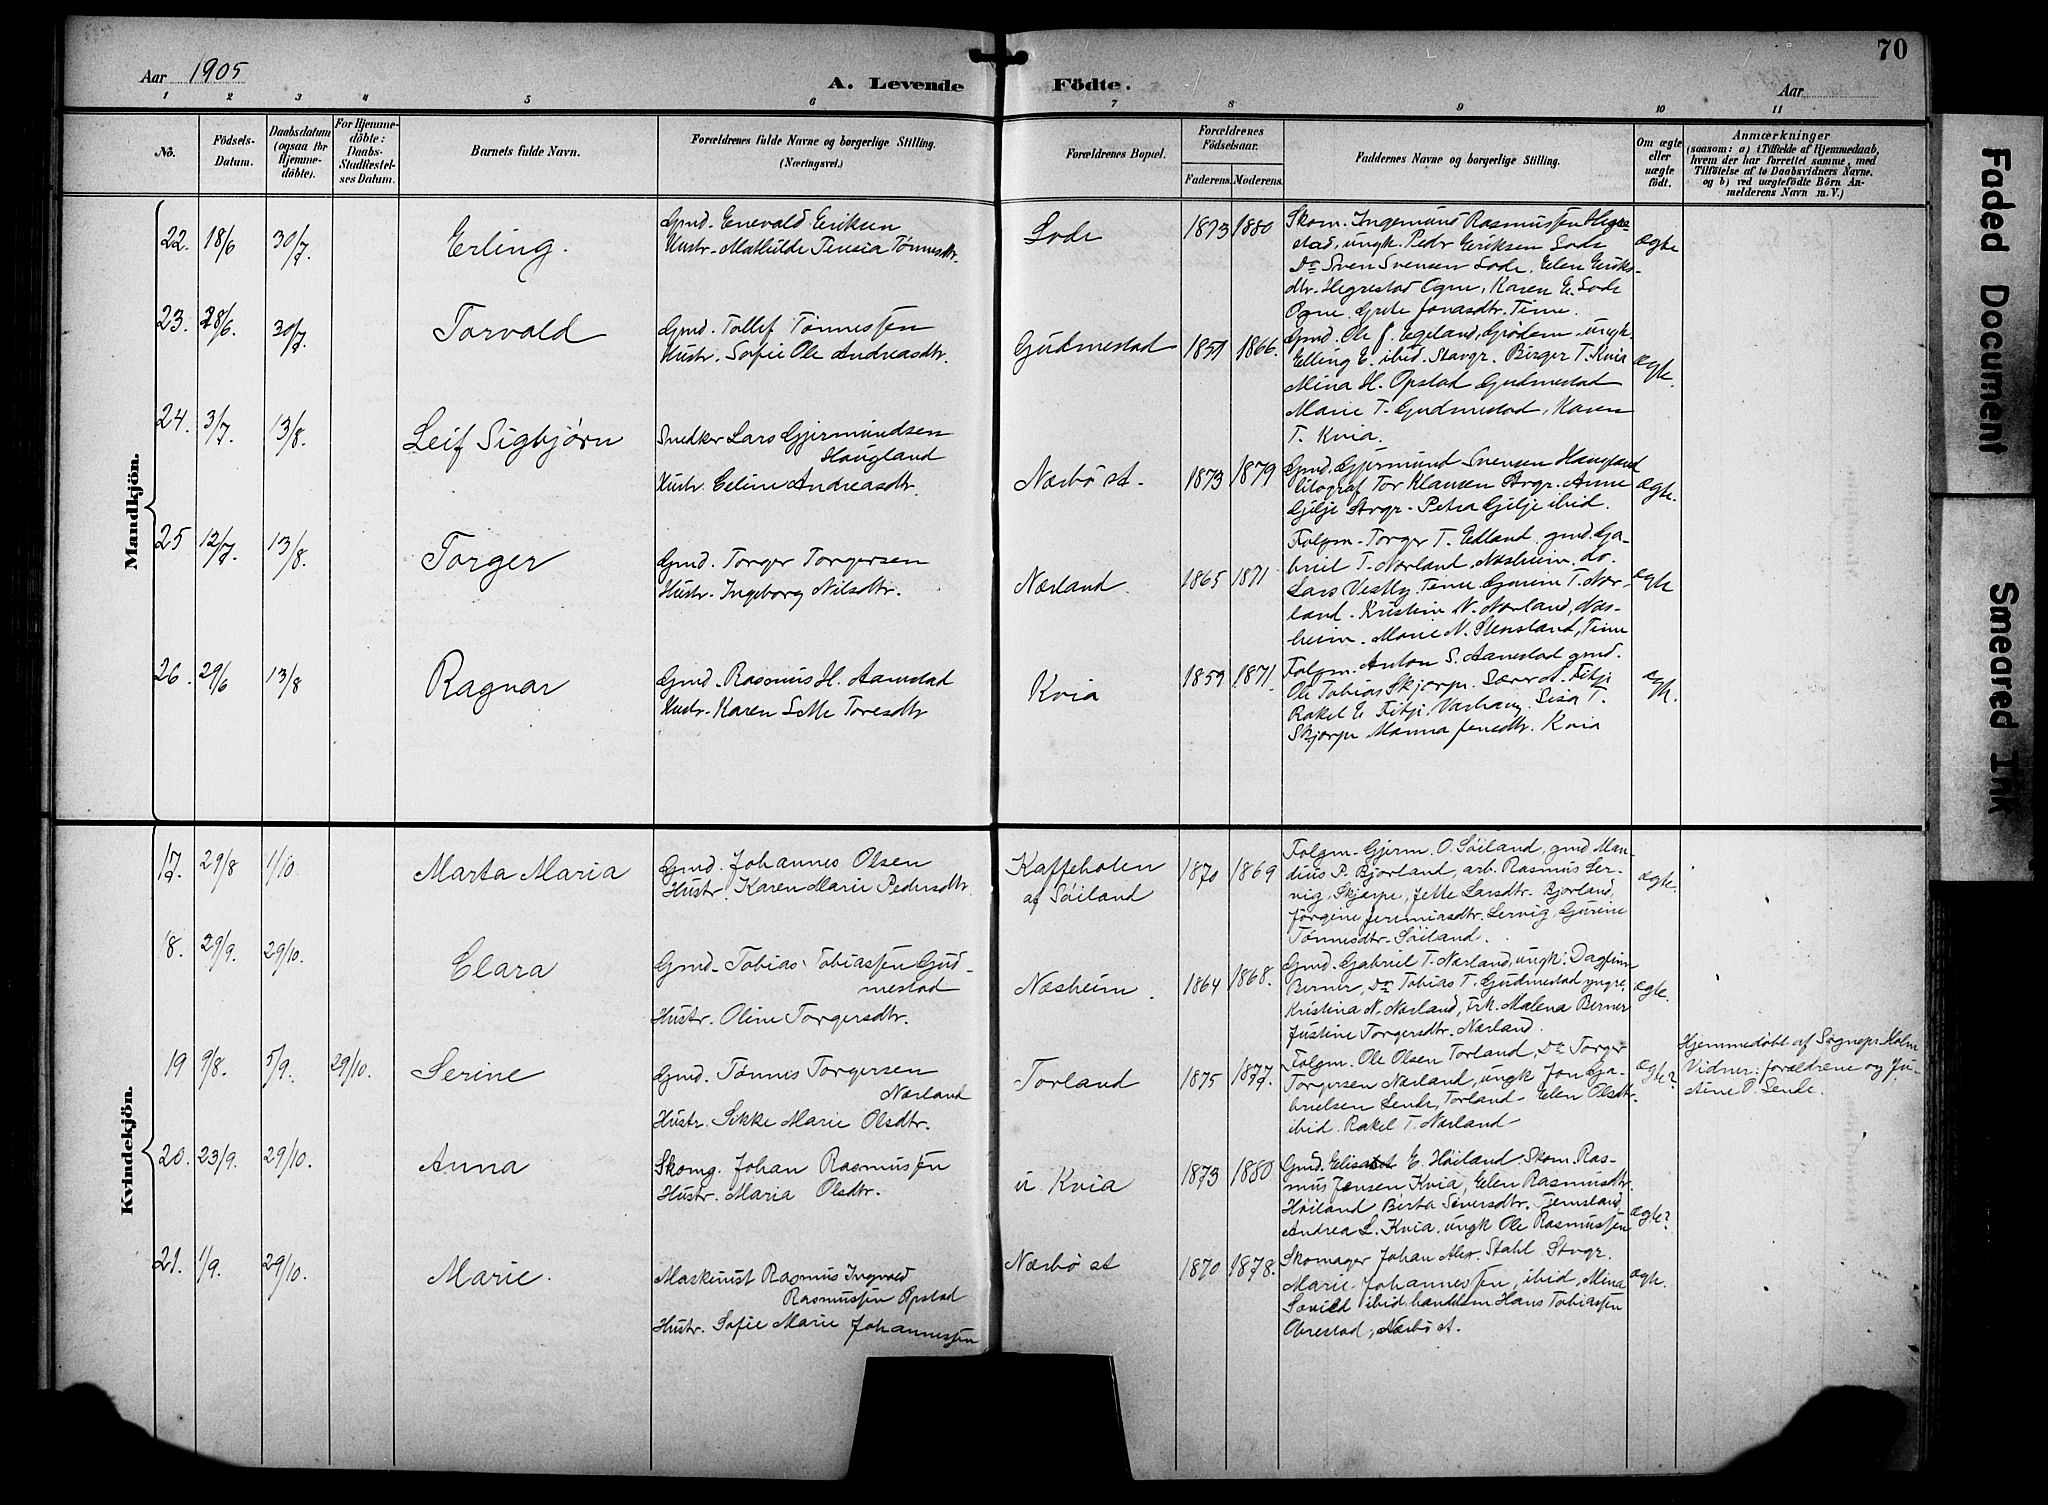 70
Aar 1905
A. Levende Födte.
Aar
1 2 3 4 5 6 7 8 9 10 11
No.
Födsels-
Datum.
Daabsdatum
(ogsaa for
Hjemme-
döbte).
For Hjemme-
döbte:
Daabs-
Stadfæstel-
ses Datum.
Barnets fulde Navn.
Forældrenes fulde Navne og borgerlige Stilling.
(Næringsvei.)
Forældrenes Bopæl.
Forældrenes
Födselsaar.
Faderens.
Moderens.
Faddernes Navne og borgerlige Stilling.
Om ægte
eller
uægte
født.
Anmærkninger
(saasom: a) i Tilfælde af Hjemmedaab,
hvem der har forrettet samme, med
Tilföielse af to Daabsvidners Navne.
og b) ved uægtefödte Börn An-
melderens Navn m. V.)
Mandkjön.
22. 18/6 30/7. Erling.
Gmd. Enevald Eriksen
Hustr. Mathilde Tensia Tønnesdtr.
Lode 1873 1880
Skom. Ingemund Rasmussen Hegre-
stad, ungk. Pedr Eriksen Lode
Do Sven Svensen Lode, Elen Eriks-
dtr. Hegrestad Ogne, Karen E. Lode
Ogne. Grete Jonasdtr. Time.
ægte
23. 28/6. 30/7. Torvald
Gmd. Tollef Tønnessen
Hustr. Sofie Ole Andreasdtr.
Gudmestad 1859 1866.
Gmd. Ole J. Egeland, Grødem, ungk.
Elling E. ibid. Stavgr. Berger T. Kvia
Mina H. Opstad Gudmestad
Marie T. Gudmestad, Karen
T. Kvia.
ægte.
24. 3/7. 13/8. Leif Sigbjørn
Snedker Lars Gjermundsen
Haugland
Hustr. Celine Andreasdtr.
Nærbø st. 1873 1879
Gmd. Gjermund Svensen Haugland
litograf Tor Klausen Stvgr. Anne
Gjilje Stvgr. Petra Gjilje ibid.
ægte.
25 12/7. 13/8. Torger
Gmd. Torger Torgersen
Hustr. Ingeborg Nilsdtr.
Nærland. 1865 1871
Folgm. Torger T. Edland, gmd. Ga-
briel T. Nærland, Næsheim. do.
Lars Vestly, Time Gurine T. Nær-
land. Kristine N. Nærland, Næs-
heim. Marie N. Stensland, Time
ægte
26. 29/6 13/8 Ragnar
Gmd. Rasmus H. Aanestad
Hustr. Karen Sette Toresdtr
Kvia 1859 1871.
Folgm. Anton S. Aanestad gmd.
Ole Tobias Skjorpe. Fitje
Rakel E Fitje, Varhaug. Sisa T.
Skjorpe Manna Jensdtr. Kvia
ægte.
Kvindekjön.
17. 29/8 1/10. Marta Maria
Gmd. Johannes Olsen
Hustr. Karen Marie Pedersdtr.
Kaffeholen
af Søiland
1870 1869
Folgm. Gjerm. O. Søiland, gmd Man-
dius P. Bjorland, arb. Rasmus Ser-
vig, Skjorpe, Jette Larsdtr. Bjorland,
Jörgine Jeremiasdtr. Servig, Gurine
Tönnesdtr. Søiland.
ægte.
18. 29/9. 29/10. Clara
Gmd. Tobias Tobiassen Gud-
mestad
Hustr. Oline Torgersdtr.
Næsheim. 1864 1868.
Gmd. Gabriel T. Nærland, ungk. Dagfinn
Berner, Do Tobias T. Gudmestad yngre,
Kristina N. Nærland, frk. Malena Berner
Justine Torgersdtr. Nærland.
ægte.
19 9/8. 5/9. 29/10. Serine
Gmd. Tønnes Torgersen
Nærland
Hustr. Sikke Marie Olsdtr.
Torland 1875 1877.
Folgm. Ole Olsen Torland, Do Torger
Torgersen Nærland, ungk Jon Ga-
brielsen Lende, Torland. Elen Olsdtr.
ibid. Rakel T. Nærland
ægte?
Hjemmedöbt af Sognepr. Holm
Vidner: forældrene og Ju-
stine P. Lende.
20. 23/9. 29/10. Anna
Skomg. Johan Rasmussen
Hustr. Maria Olsdtr.
u. Kvia 1873 1880
Gmd. E. Høiland. Skom. Ras-
mus Jensen Kvia, Elen Rasmusdtr.
Høiland, Berta Siversdtr. Tjemsland,
Andrea L. Kvia, ungk Ole Rasmussen
ægte?
21. 1/9. 29/10. Marie.
Maskinist Rasmus Ingvald
Rasmussen Opstad
Hustr. Sofie Marie Johannessen
Nærbø st 1870 1878.
Skomager Johan Alex. Stahl Stvgr.
Marie Johannessen, ibid, Mina
ibid, handlsm Hans Tobiassen
Obrestad, Nærbø st.
ægte.
Faded Document
Smeared Ink